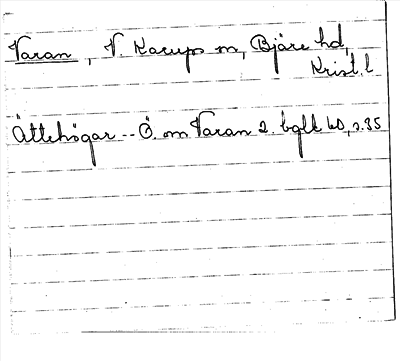 Varan, V. Karups sn, Bjäre hd,
Krist. l
Ättehögar -- Ö. om Varan 2. bglt 60, s. 35